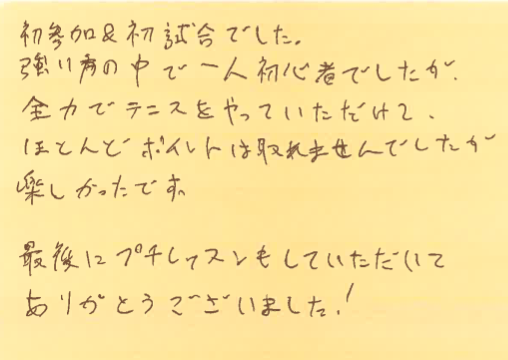 初参加&初試合でした。
強い方の中で一人初心者でしたが、
全力でテニスをやっていただけて、
ほとんどポイントは取れませんでしたが
楽しかったです。
最後にプチレッスンもしていただいて
ありがとうございました!